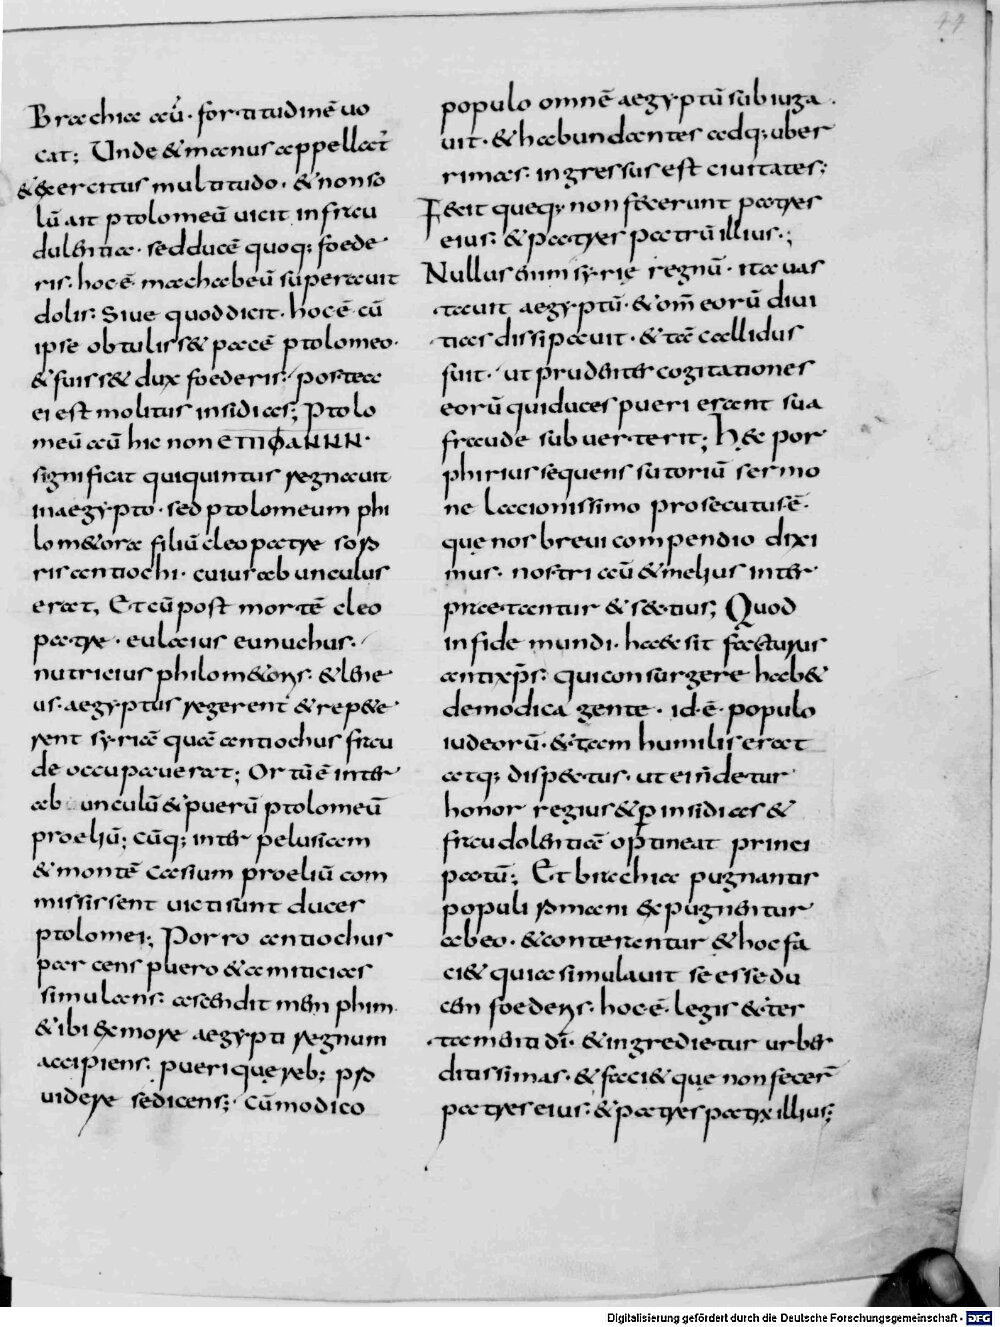 44
Brachia aū· fortitudinē uo
cat; Unde & manus appellat̄
& exercitus multitudo· & non so
lū ait ptolomeū uicit in frau
dulentia· sed ducē quoq; foede
ris· hoc ē machabeū superauit
dolis· Siue quod dicit· hoc ē cū
ipse obtuliss& pacē ptolomeo·
& fuiss& dux foederis· postea
ei est molitus insidias; Ptolo
meū aū hic non ΕΠΙΦΑΝΝΝ·
significat qui quintus regnauit
in aegypto· sed ptolomeum phi
lom&ora filiū cleopatrę soro
ris antiochi· cuius abunculus
erat, Et cū post mortē cleo
patrę· eulaius eunuchus·
nutricius philom&oris· & lene
us· aegyptus regerent & rep&e
rent syriā quā antiochus frau
de occupauerat; Ortū ē inter
abunculū & puerū ptolomeū
proeliū; cūq; inter pelusiam
& montē casium proeliū com
mississent uicti sunt duces
ptolomei; Porro antiochus
parcens puero & amiticias
simulans· ascendit menphim
& ibi ex more aegypti regnum
accipiens· puerique reb; pro
uidere se dicens; cū modico
populo omnē aegyptū subiuga
uit· & habundantes adq; uber
rimas· ingressus est ciuitates;
Fecit queq; non fecerunt patres
eius· & patres patrū illius·;
Nullus enim syrię regnū· ita uas
tauit aegyptū· & om̄ eorū diui
tias dissipauit· & tā callidus
fuit· ut prudenter cogitationes
eorū qui duces pueri erant sua
fraude subuerterit; Hęc por
phirius sequens sutoriū sermo
ne laccionissimo prosecutus ē·
quę nos breui compendio dixi
mus· nostri aū & melius inter
praetantur & sectius; Quod
in fide mundi· haec sit facturus
antixp̄s· qui consurgere hab&
de modica gente· id·ē· populo
iudeorū· & tam humilis erat
atq; dispectus· ut ei n̄ detur
honor regius & p̱ insidias &
fraudolentiā optineat princi
patū; Et brachia pugnantis
populi romani expugnentur
ab eo· & conterantur & hoc fa
ci& quia simulauit se esse du
cem foederis· hoc·ē· legis & tes
tamenti dī· & ingredietur urbes
ditissimas· & faci& que non fecer̄
patres eius· & patres patrū illius;
Digitalisierung gefördert durch die Deutsche Forschungsgemeinschaft - DFG